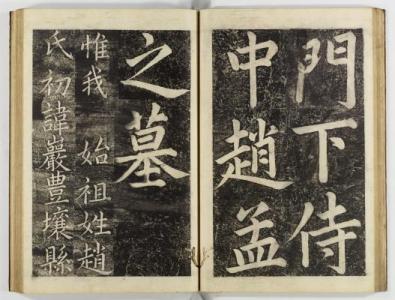 門下侍
中趙孟
之墓
惟我 始祖姓趙
氏初諱巖豊壤縣